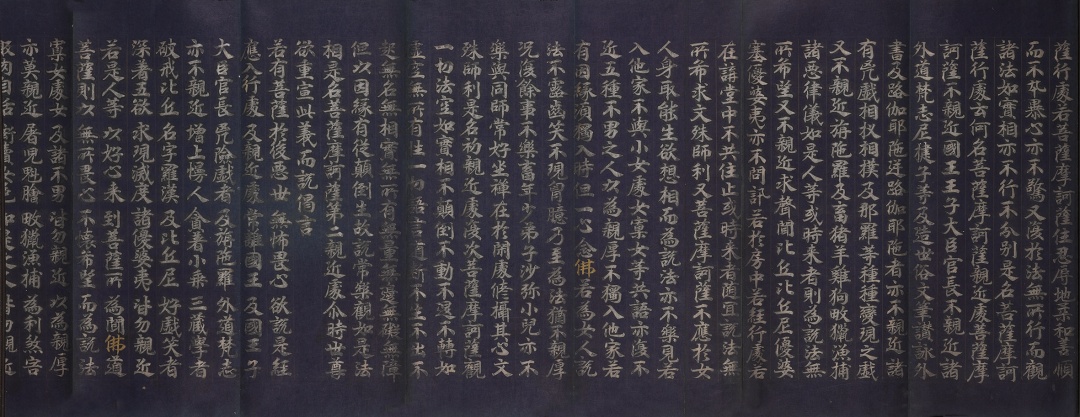 薩行處若菩薩摩訶薩住忍辱地柔和善順
而不卒暴心亦不驚又復於法無所行而觀
諸法如實相亦不行不分別是名菩薩摩訶
薩行處云何名菩薩摩訶薩親近處菩薩摩
訶薩不親近國王王子大臣官長不親近諸
外道梵志尼揵子等及造世俗文筆讚詠外
書及路伽耶陀逆路伽耶陀者亦不親近諸
有兇戲相扠相撲及那羅等種種變現之戲
又不親近旃陀羅及畜猪羊雞狗畋獵漁捕
諸惡律儀如是人等或時來者則為說法無
所希望又不親近求聲聞比丘比丘尼優婆
塞優婆夷亦不問訊若於房中若經行處若
在講堂中不共住止或時來者隨宜說法無
所希求文殊師利又菩薩摩訶薩不應於女
人身取能生欲想相而為說法亦不樂見若
入他家不與小女處女寡女等共語亦復不
近五種不男之人以為親厚不獨入他家若
有因緣須獨入時但一心念佛若為女人說
法不露齒笑不現胸臆乃至為法猶不親厚
況復餘事不樂畜年少弟子沙彌小兒亦不
樂與同師常好坐禪在於閑處修攝其心文
殊師利是名初親近處復次菩薩摩訶薩觀
一切法空如實相不顛倒不動不退不轉如
虛空無所有性一切語言道斷不生不出不
起無名無相實無所有無量無邊無礙無障
但以因緣有從顛倒生故說常樂觀如是法
相是名菩薩摩訶薩第二親近處尒時世尊
欲重宣此義而說偈言
若有菩薩 於後惡世 無怖畏心 欲說是經
應入行處 及親近處 常離國王 及國王子
大臣官長 兇險戲者 及旃陀羅 外道梵志
亦不親近 增上慢人 貪著小乘 三藏學者
破戒比丘 名字羅漢 及比丘尼 好戲笑者
深著五欲 求現滅度 諸優婆夷 皆勿親近
若是人等 以好心來 到菩薩所 為聞佛道
菩薩則以 無所畏心 不懷希望 而為說法
寡女處女 及諸不男 皆勿親近 以為親厚
亦莫親近 屠兒魁膾 畋獵漁捕 為利煞害
販肉自活 衒賣女色 如是之人 皆勿親近